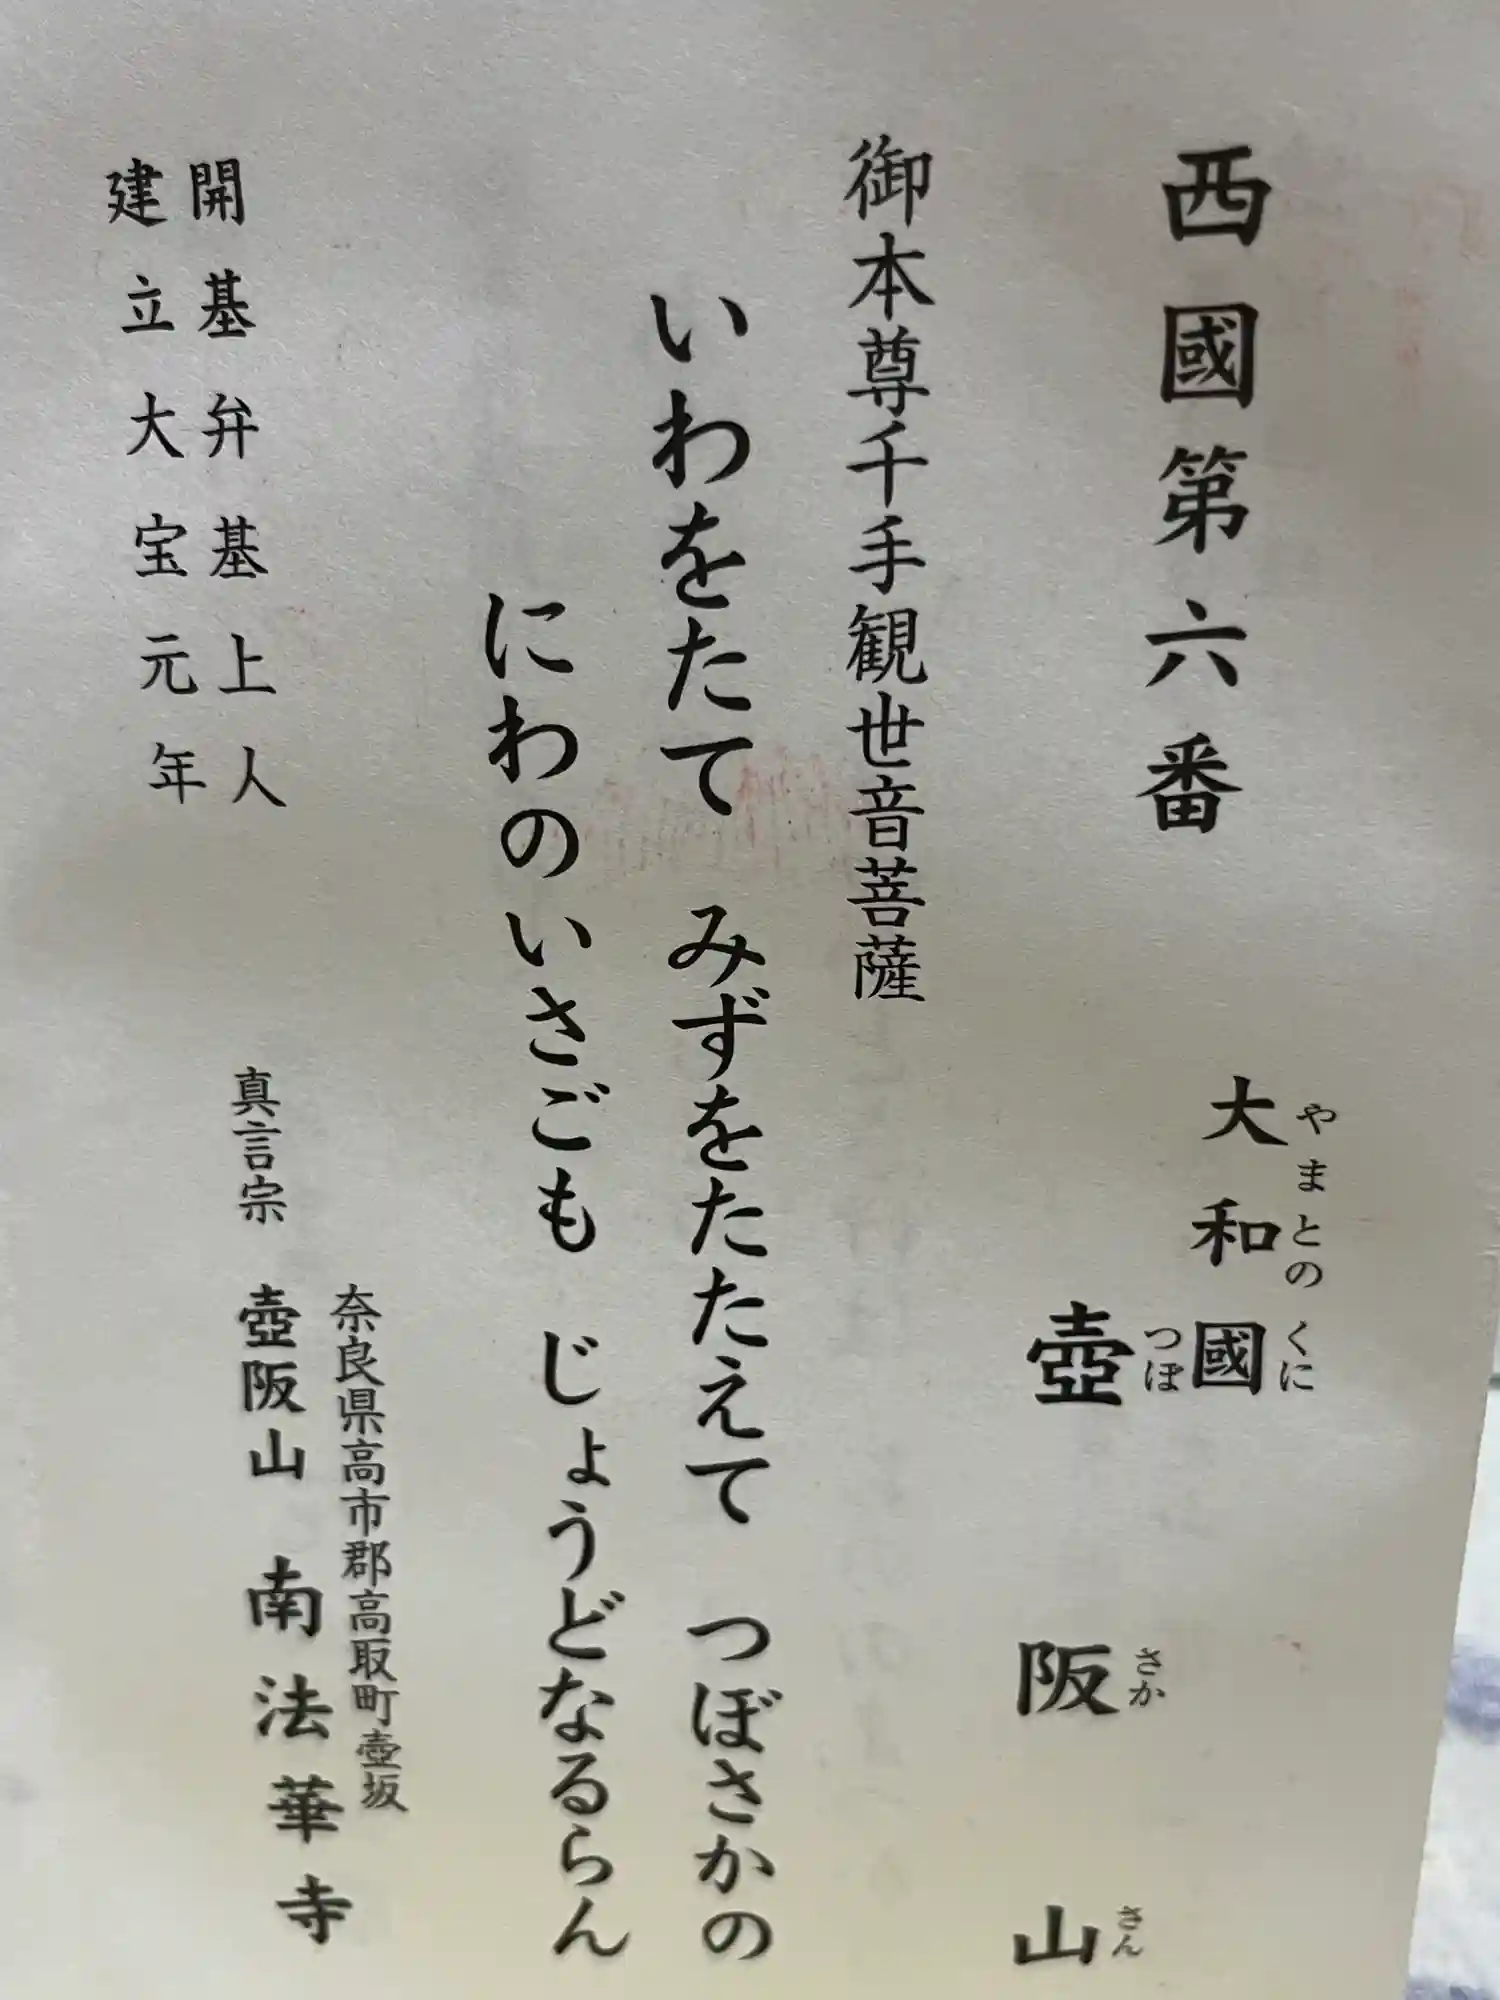 西國第六番
大和國
やまとのくに
壺阪山
つぼさかさん
御本尊千手観世音菩薩
いわをたて みずをたたえて つぼさかの
にわのいさごも じょうどなるらん
開基弁基上人
建立大宝元年
奈良県高市郡高取町壺坂
真言宗 壺阪山 南法華寺